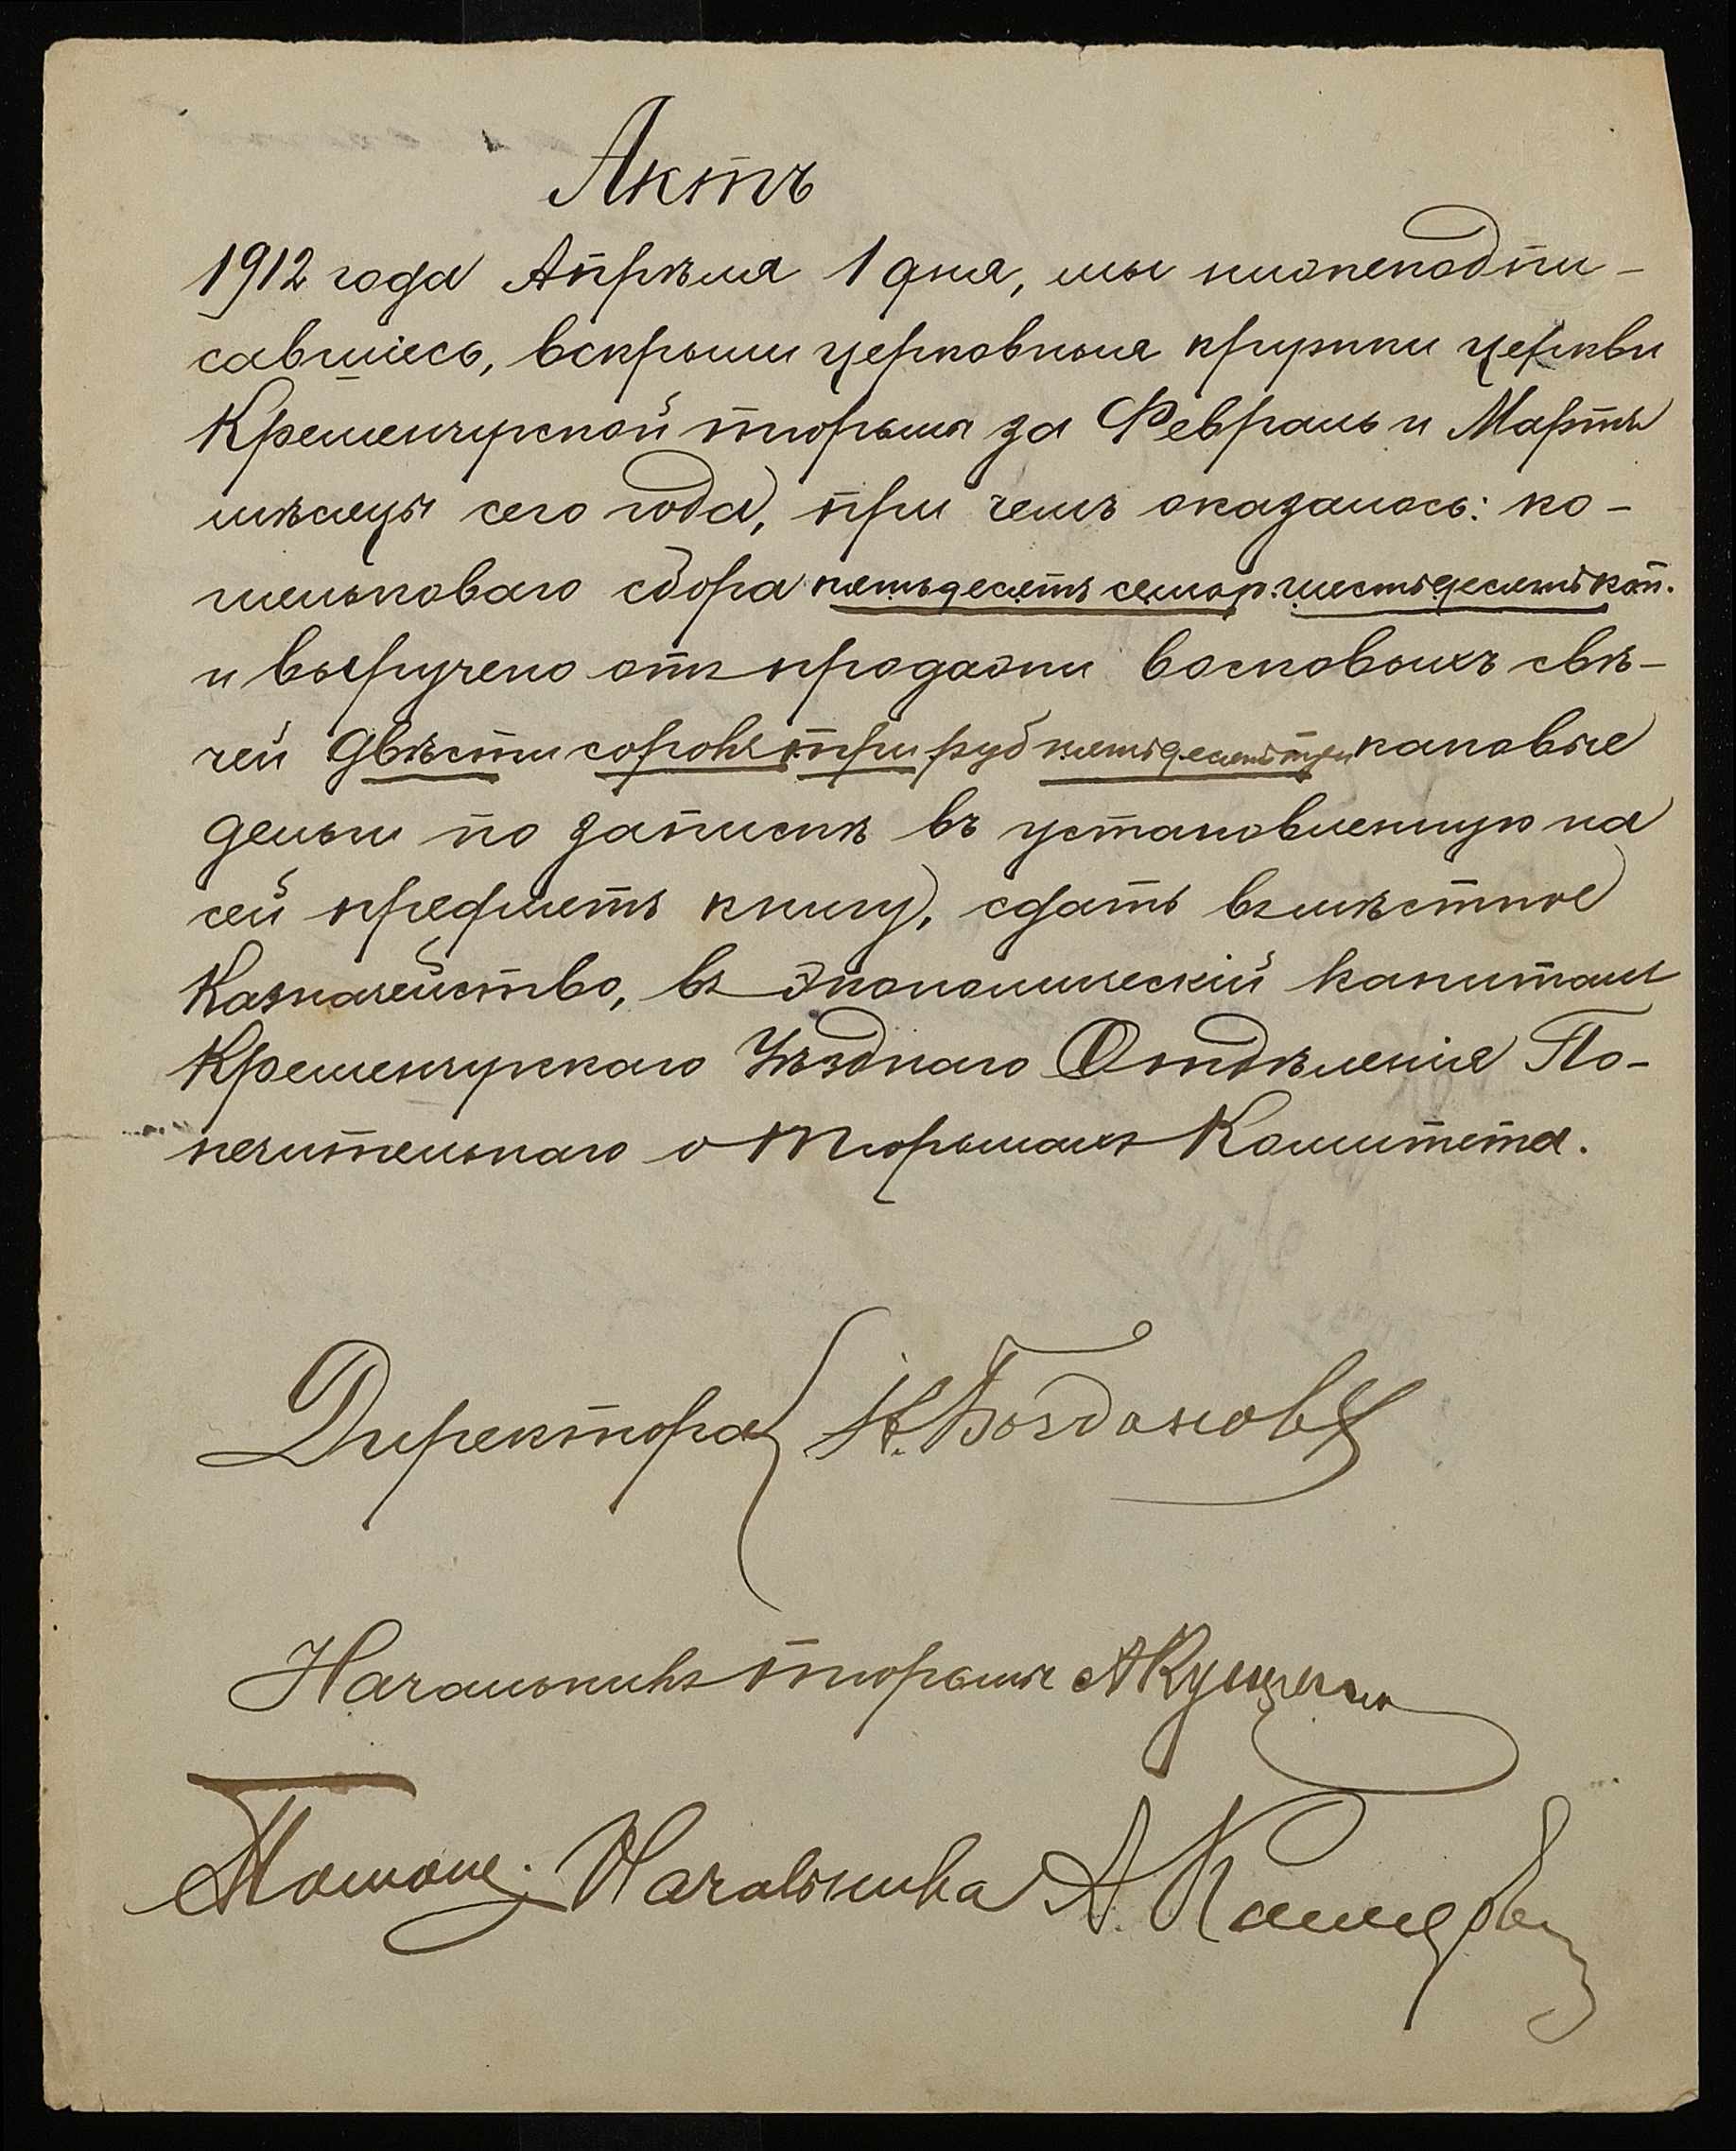 Актъ
1912 года Апрѣля 1 дня, мы нижеподпи-
савшіесь, вскрыли церковныя кружки церкви
Кременчугской тюрьмы за Февраль и Мартъ
мѣсяцы сего года, при чемъ оказалось: ко-
шельковаго сбора пятьдесятъ семь р. шестьдесятъ коп.
и выручено отъ продажи восковыхъ свѣ-
чей Двѣсти сорокъ три руб пятьдесятъ три каковые
деньги по запискѣ въ установленную на
сей предметъ книгу, сдать въ мѣстное
Казначейство, въ Экономическій капиталъ
Кременчугскаго Уѣзднаго Отдѣленія По-
печительнаго о Тюрьмахъ Комитета.
Директора Н. Богдановъ
Начальникъ тюрьмы А
Помощ. Начальника А.